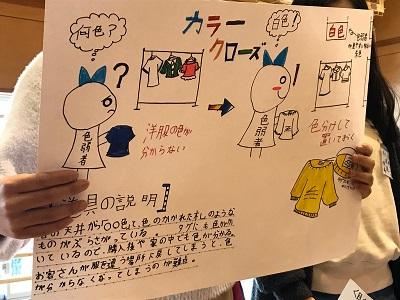 何色?
カラー
クローズ
白色!
白色
?
!
色弱者
洋服の色が
分からない
色弱者
色分けして
置いておく
道具の説明】
の天井から「○○色」と、色のかかれた札のような
ものがぶらさがっている。 タグにも色が
いているので、購入後や家の中でも色が分かる。
お客さんが服を違う場所に戻してしまうと、色
が分からなくなってしまうのが難点。